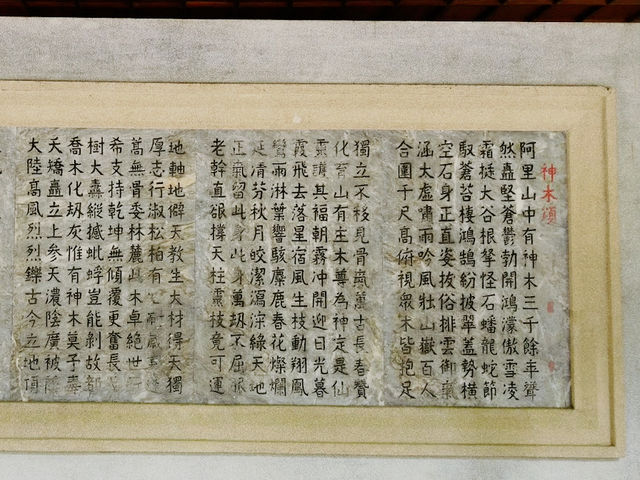 神木頌
阿里山中有神木三千餘年聳
然矗堅蒼鬱勃開鴻濛傲雪凌
霜挺大谷根拏怪石蟠龍蛇節
馭蒼苔棲鴻鵠紛披翠蓋勢橫
空石身正直姿拔俗排雲御氣
涵太虛嘯雨吟風壯山嶽百人
合圍千尺高俯視眾木皆抱足
獨立不移見骨氣萬古長春贊
化育山有主木尊為神哀是仙
靈護其福朝霧沖開迎日光暮
霞飛去落星宿風生枝動翔鳳
鸞雨淋葉響駭麋鹿春花燦爛
延清芬秋月皎潔瀉淙綠天地
正氣留此身此身萬劫不屈
老幹直欲撐天柱靈枝竟可運
地軸地僻天教生大材得天獨
厚志行淑松柏有心耐歲寒
嵩無骨委林麓此木卓絕世所
希支持乾坤無傾覆更奮長
樹大纛縱撼蚍蜉豈能剝故都
喬木化劫灰惟有神木莫予毒
夭矯矗立上參天濃陰廣被
大陸高風烈烈鑠古今立地頂